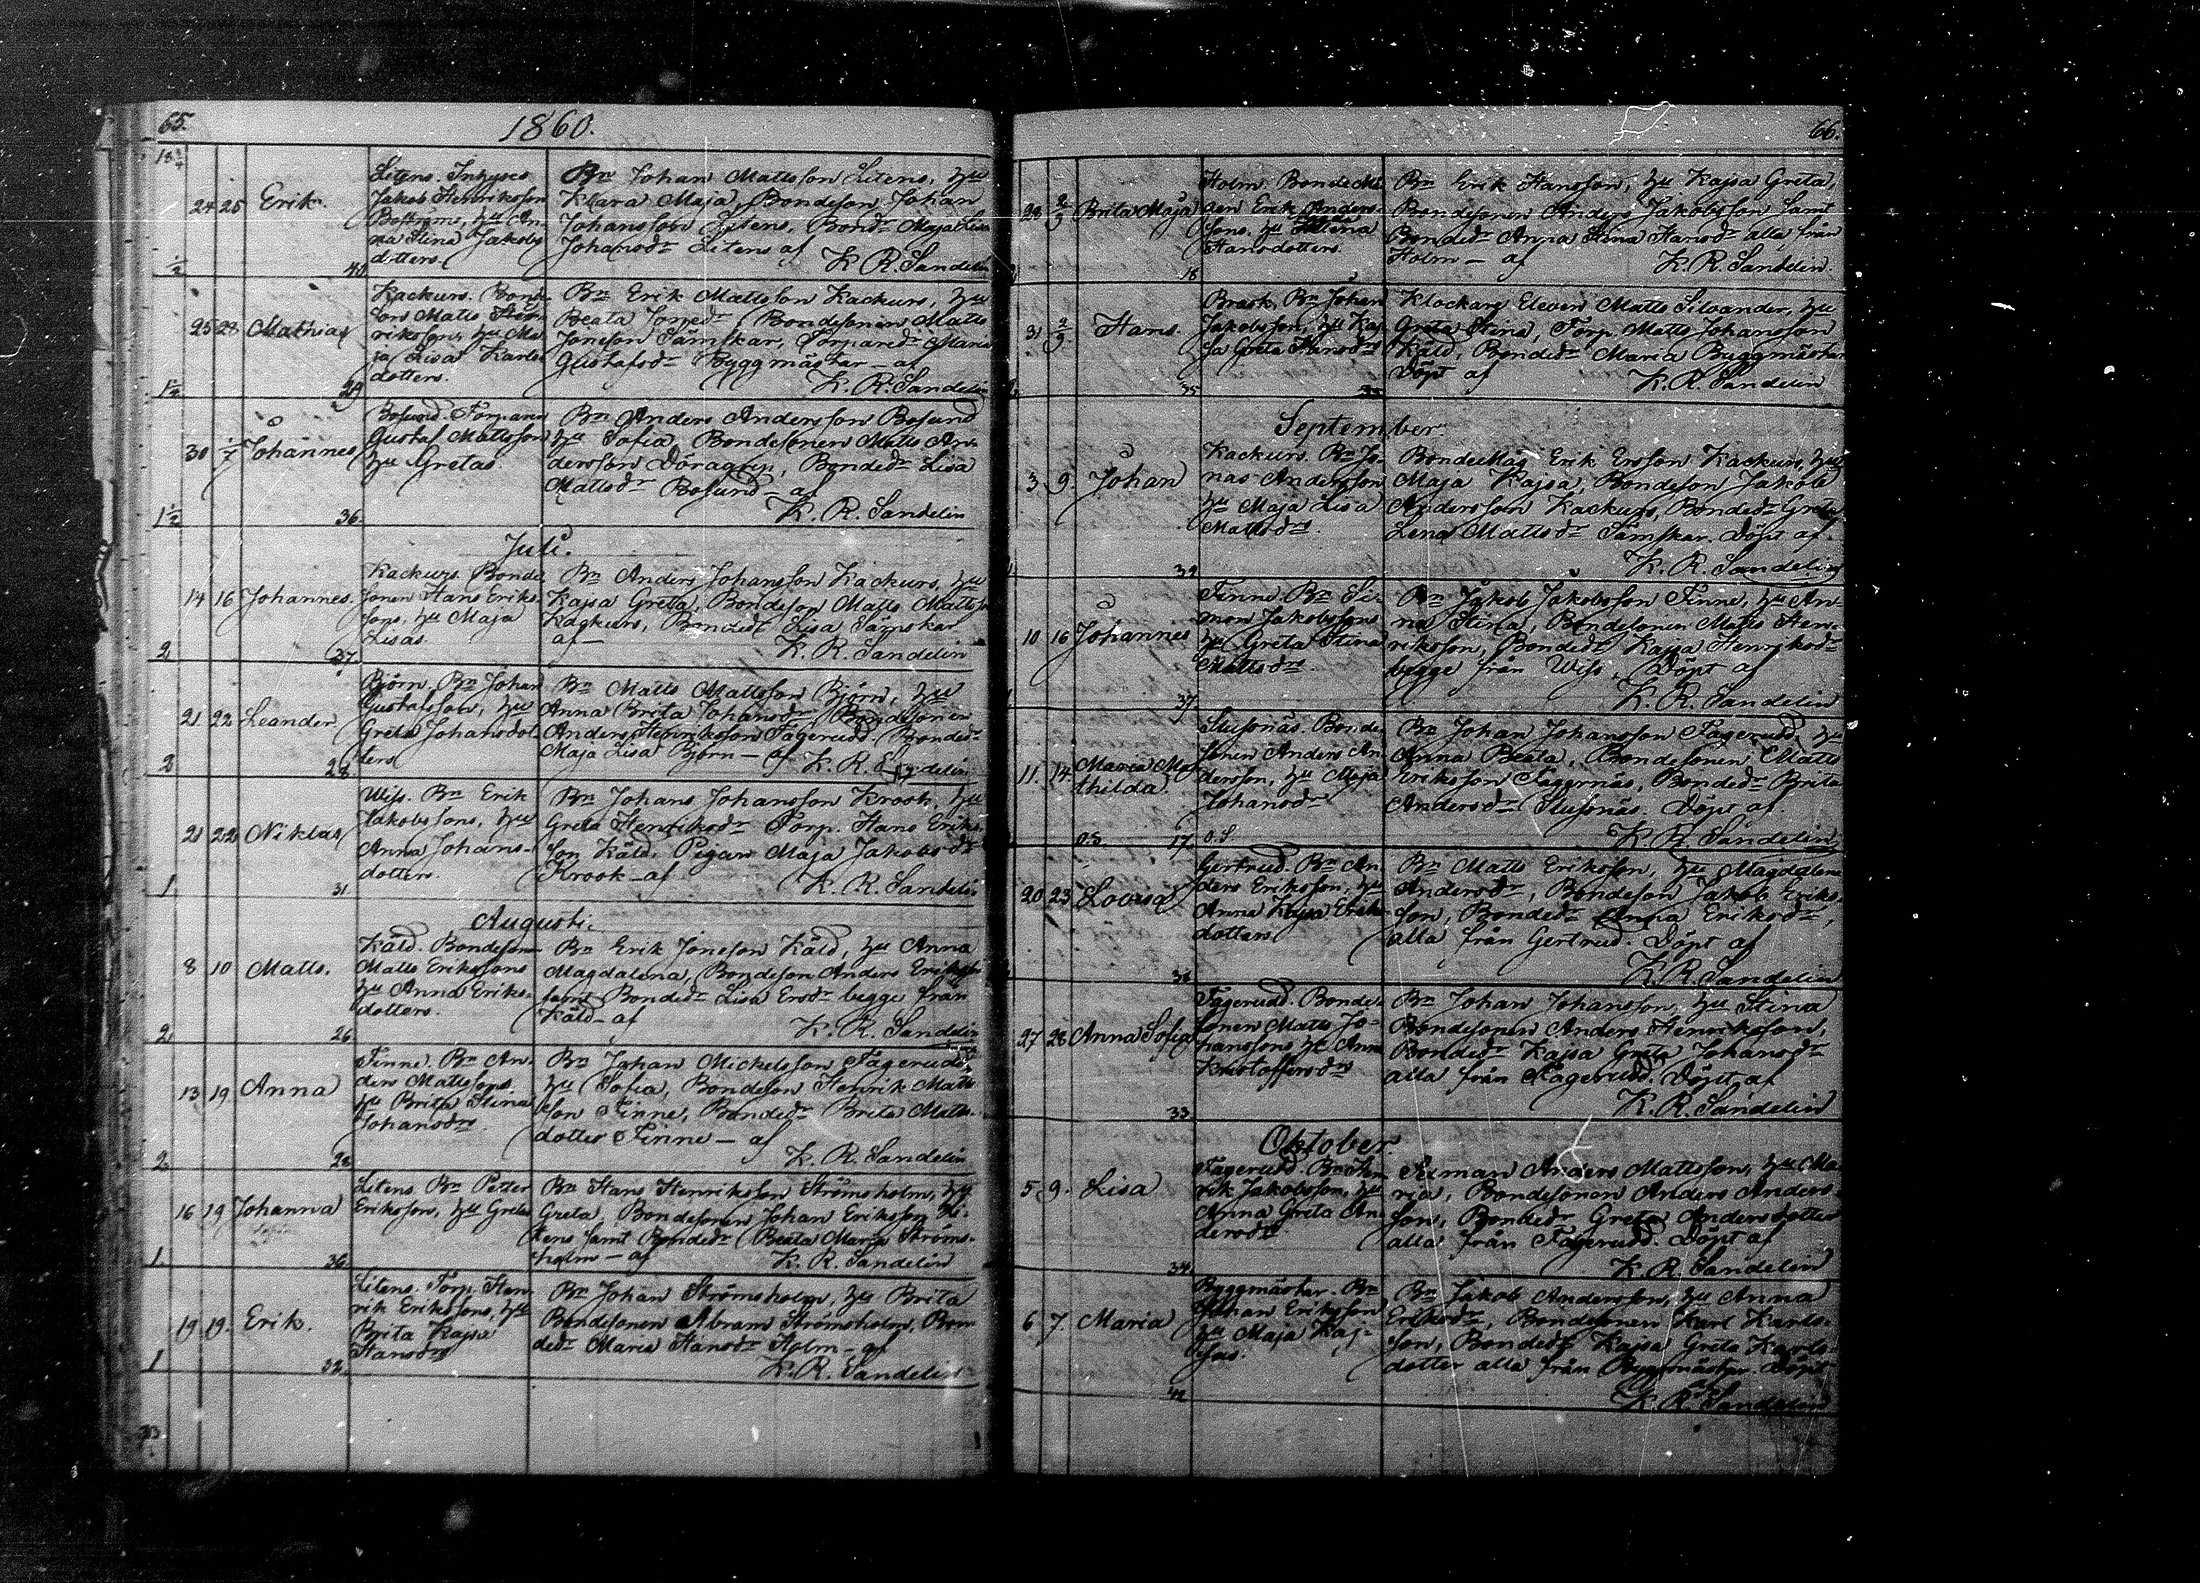 65.
1860.
24 25 Erik.
Litens. Inhyses
Jakob Henriksson
Boströms, hu An-
na Stina Jakobs
dotters.
40
Bn Johan Mattsson Litens, hu
Klara Maja, Bondeson Johan
Johansson Litens, Bondr Maja Lisa
Johansdr Litens af
K. R. Sandelin
25 28 Mathias
Kackurs. Bonde-
sons Matts Hen-
riksson, hu Ma-
ja Lisa Karls-
dotters.
29
Bn Erik Mattsson Kackurs, hu
Beata Jonsdr Bondesonen Matts
Jonsson Sämskar, Torparedr Maria
Gustafsdr Byggmästar - af
K. R. Sandelin
30 1/7 Johannes
Bosund. Torparen
Gustaf Mattsson
hu Gretas
1 1/2
36
Bn Anders Andersson Bosund
hu Sofia, Bondesonen Matts An-
dersson Döragrip, Bondedr Lisa
Mattsdr Bosund - af
K. R. Sandelin
Juli.
14 16 Johannes.
Kackurs. Bonde
sonen Hans Eriks-
sons, hu Maja
Lisas
2
37
Bn Anders Johansson Kackurs, hu
Kajsa Greta, Bondeson Matts Matts
Kackurs, Bondedr Lisa Sämskar
af
K. R. Sandelin
21 22 Leander
Björn, Bn Johan
Gustafsson, hu
Greta Johansdot-
ters
28
Bn Matts Mattsson Björn, hu
Anna Brita Johansdr, Bondesonen
Anders Henriksson Fagerudd, Bondedr
Maja Lisa Björn - af K. R. Sandelin
21 22 Niklas
Wiss. Bn Erik
Jakobssons, hu
Anna Johans-
dotters.
1
31
Bn Johans Johansson Krook, hu
Greta Henriksdr Torp. Hans Eriks-
son Käld, Pigan Maja Jakobsdr
Krook - af
K. R. Sandelin
Augusti.
8 10 Matts.
Käld. Bondesonen
Matts Erikssons
hu Anna Eriks-
dotters.
2
26
Bn Erik Jonsson Käld, hu Anna
Magdalena, Bondeson Anders Eriksson
samt Bondedr Lisa Ersdr begge från
Käld - af
K. R. Sandelin
13 19 Anna
Finne. Bn An-
ders Mattssons
hu Brita Stina
Johansdrs
2
28
Bn Johan Michelsson Fagerudd,
hu Sofia, Bondeson Henrik Matts
son Finne, Bondedr Brita Matts-
dotter Finne - af
K. R. Sandelin
16 19 Johanna
Litens Bn Petter
Eriksson, hu Greta
1
36
Bn Hans Henriksson Strömsholm, hu
Greta, Bondesonen Johan Eriksson Li-
tens samt Bondedr Beata Maria Ströms-
holm - af
K. R. Sandelin
19 19. Erik.
Litens. Torp. Hen-
rik Erikssons, hu
Brita Kajsa
Hansdrs
1
32
Bn Johan Strömsholm, hu Brita
Bondesonen Abram Strömsholm, Bon-
dedr Maria Hansdr Holm - af
K. R. Sandelin
66.
28 2/9 Brita Maja
Holm. Bonde
Erik Anders-
sons. hu Stina
Hansdotters
18
Bn Erik Hansson, hu Kajsa Greta,
Bondesonen Anders Jakobsson samt
Bondedr Anna Stina Hansdr alla från
Holm - af
K. R. Sandelin.
31 2/9. Hans.
Brask, Bn Johan
Jakobsson, hu Kaj-
sa Greta Hansdrs
35
Klockare Eleven Matts Silvander, hu
Greta Stina, Torp. Matts Johansson
Käld, Bondedr Maria Byggmästar
Döpt af
K. R. Sandelin
September
3 9. Johan
Kackurs. Bn Jo-
nas Andersson
hu Maja Lisa
Mattsdrs.
39
Erik Ersson Kackurs, hu
Maja Kajsa, Bondeson Jakob
Andersson Kackurs, Bondedr Greta
Lena Mattsdr Sämskar. Döpt af
K. R. Sandelin
10 16 Johannes
Finne. Bn Si-
mon Jakobssons
hu Greta Stina
Mattsdrs
37
Bn Jakob Jakobsson Finne, hu An-
na Stina, Bondesonen Matts Hen-
riksson, Bondedr Kajsa Henriksdr
begge från Wiss, Döpt af
K. R. Sandelin
11. 14. Maria Ma-
thilda
Slussnäs. Bonde-
sonen Anders An-
dersson, hu Maja
Johansdr
17
Bn Johan Johansson Fagerudd, hu
Anna Beata, Bondesonen Matts
Eriksson Fagernäs, Bondedr Brita
Andersdr Slussnäs. Döpt af
K. R. Sandelin
20 23 Lovisa
Gertrud. Bn An-
ders Eriksson, hu
Anna Kajsa Eriks-
dotters
36
Bn Matts Eriksson, hu Magdalena
Andersdr, Bondeson Jakob Eriks-
son, Bondedr Anna Eriksdr,
alla från Gertrud. Döpt af
K. R. Sandelin
27 28 Anna Sofia
Fagerudd. Bonde-
sonen Matts Jo-
hanssons hu Anna
Kristoffersdrs
33
Bn Johan Johansson, hu Stina
Bondesonen Anders Henriksson,
Bondedr Kajsa Greta Johansdr
alla från Fagerudd. Döpt af
K. R. Sandelin
Oktober.
5 9. Lisa
Fagerudd. Bn Hen-
rik Jakobsson, hu
Anna Greta An-
dersdr
34
Anders Mattsson, hu Ma-
ria, Bondesonen Anders Anders-
son, Bondedr Greta Andersdotter
alla från Fagerudd. Döpt af
K. R. Sandelin
6 7. Maria
Byggmästar. Bn
Johan Eriksson
hu Maja Kaj-
sas.
42
Bn Jakob Andersson, hu Anna
Eriksdr, Bondesonen Karl Karls-
son, Bondedr Kajsa Greta Karls-
dotter alla från Byggmästar. Döpt
af
K. R. Sandelin